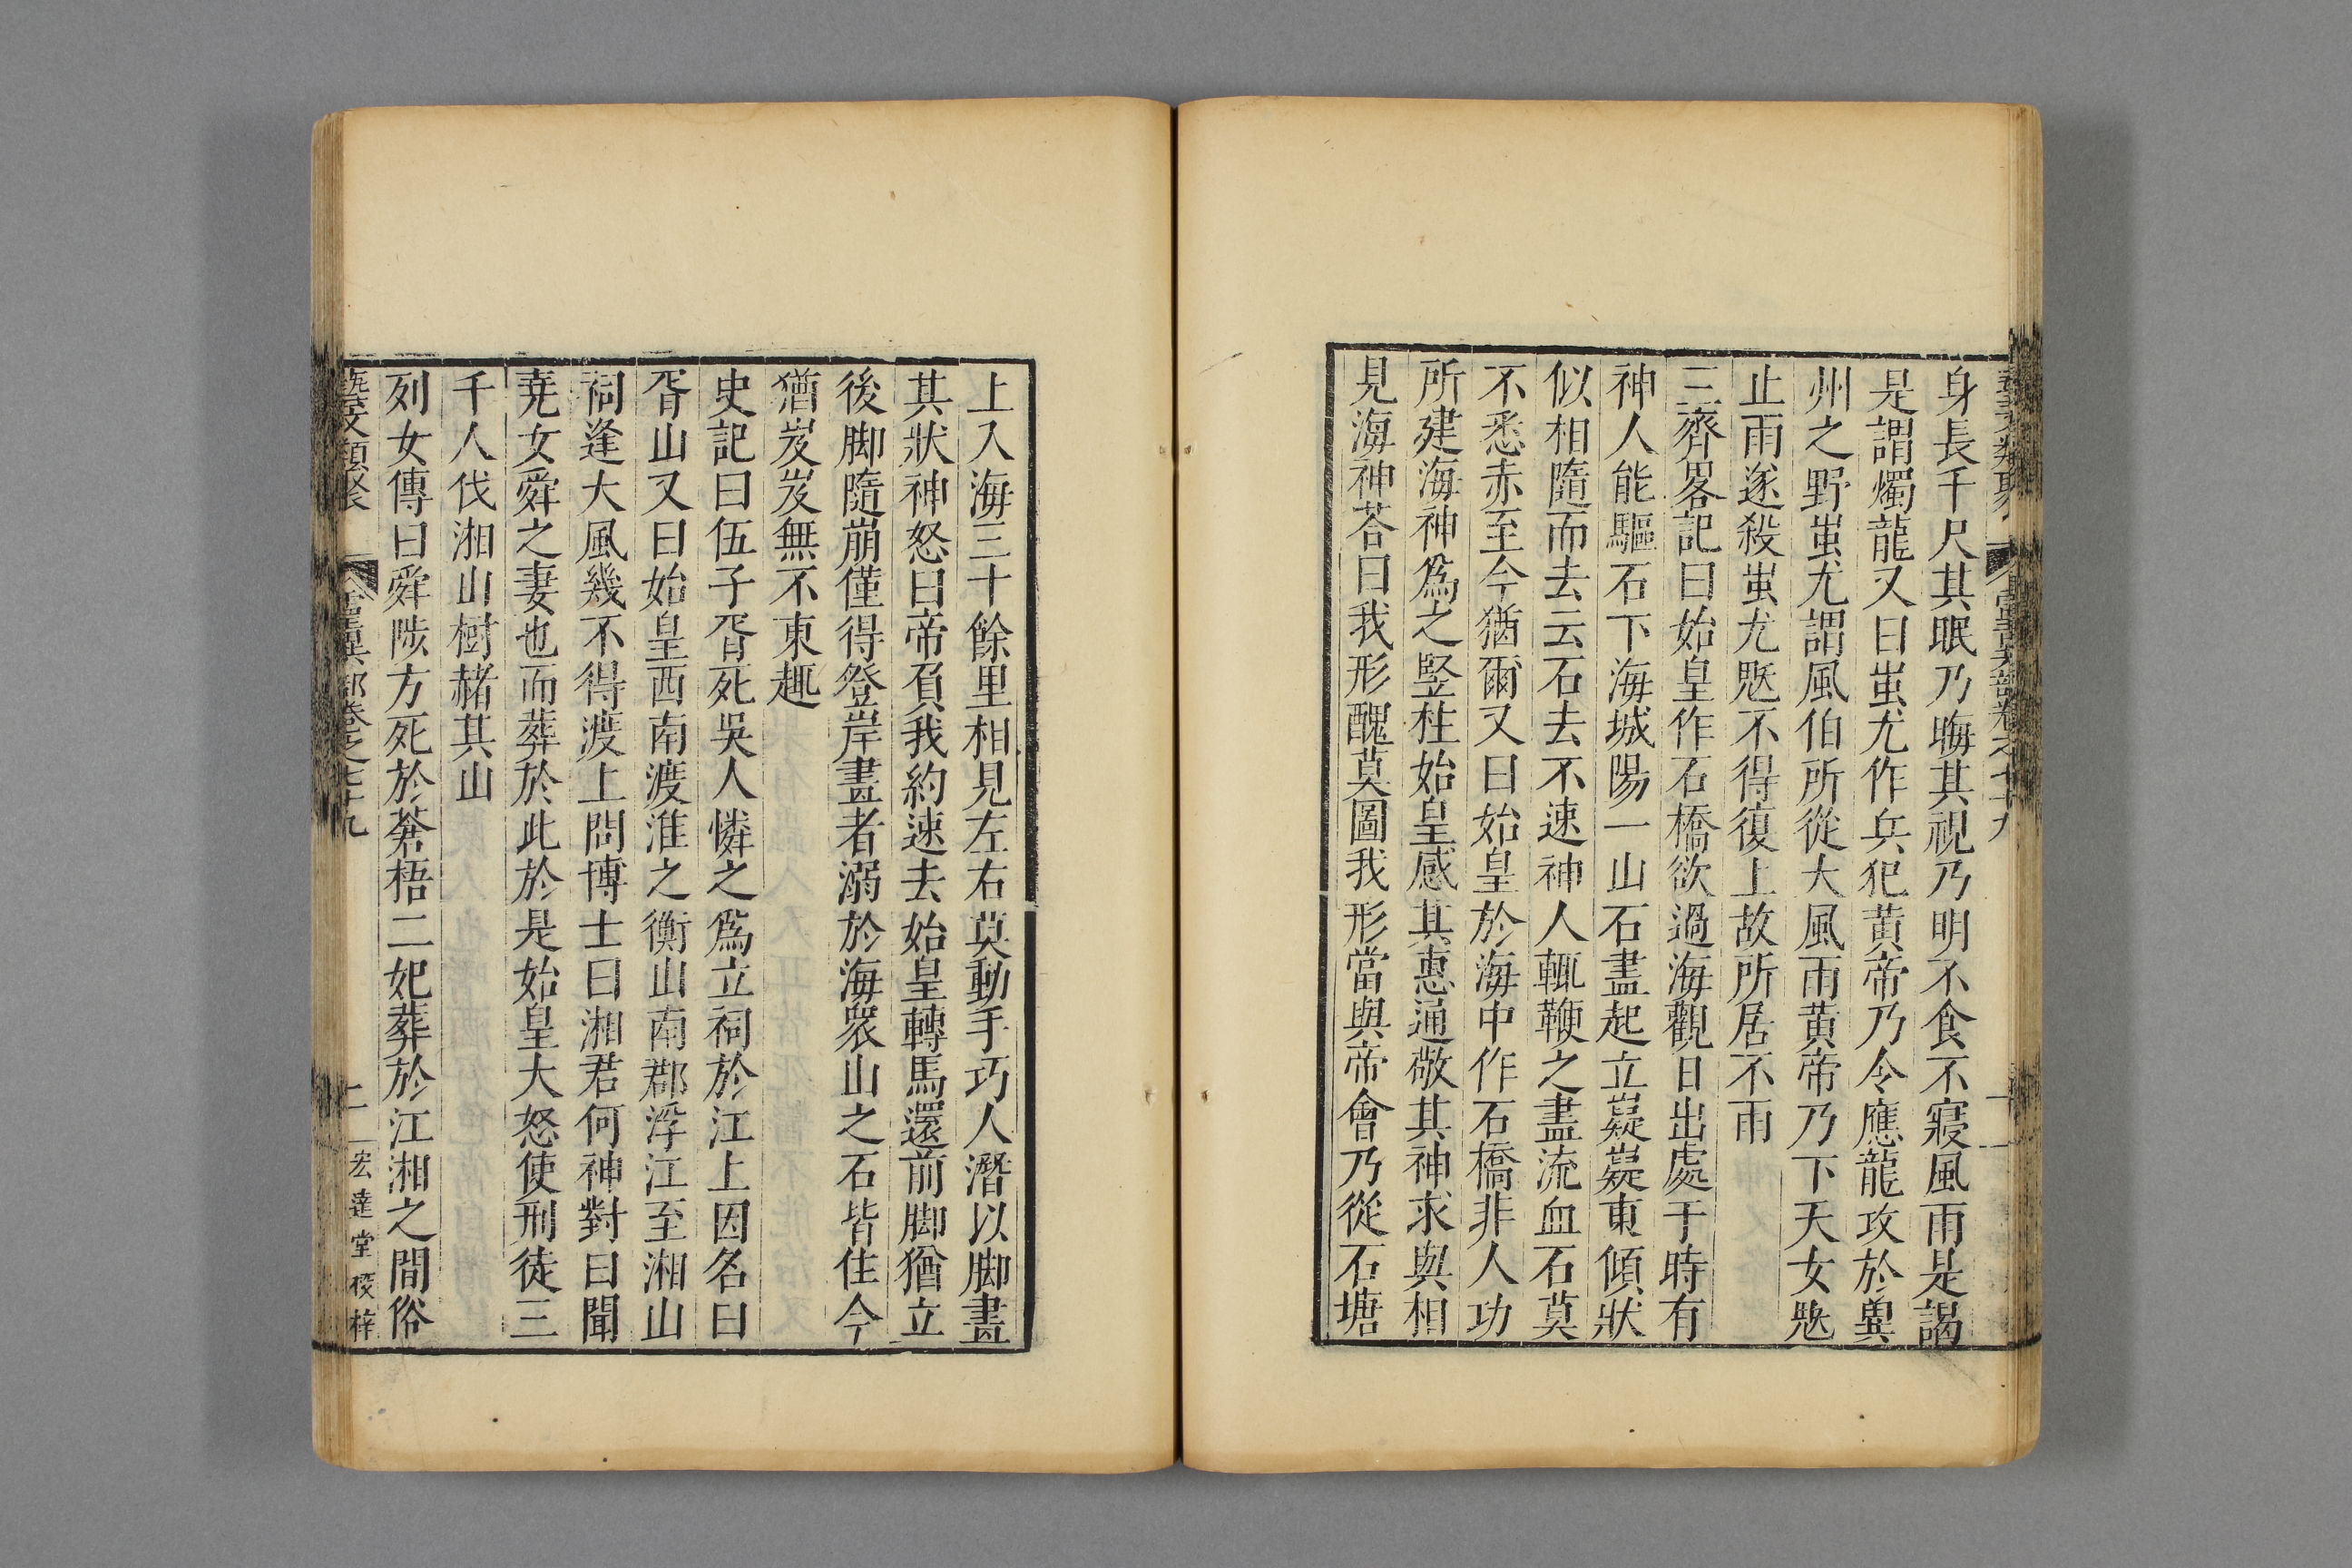 身長千尺其眠乃晦其視乃明不食不寢風雨是謁
是謂燭龍又曰蚩尤作兵犯黃帝乃令應龍攻於兾
州之野蚩尤謂風伯所從大風雨黃帝乃下天女妭
止雨遂殺蚩尤妭不得復上故所居不雨
三齊畧記曰始皇作石橋欲過海觀日出處于時有
神人能驅石下海城陽一山石盡起立嶷嶷東傾狀
似相隨而去云石去不速神人輒鞭之盡流血石莫
不悉赤至今猶爾又曰始皇於海中作石橋非人功
所建海神爲之竪柱始皇感其惠通敬其神求與相
見海神荅曰我形醜莫圖我形當與帝會乃從石塘
上入海三十餘里相見左右莫動手巧人潛以脚畫
其狀神怒曰帝負我約速去始皇轉馬還前脚猶立
後脚隨崩僅得登岸畫者溺於海衆山之石皆住今
猶岌岌無不東趣
史記曰伍子胥死吳人憐之爲立祠於江上因名曰
胥山又曰始皇西南渡淮之衡山南郡浮江至湘山
祠逢大風幾不得渡上問博士曰湘君何神對曰聞
堯女舜之妻也而葬於此於是始皇大怒使刑徒三
千人伐湘山樹赭其山
列女傳曰舜陟方死於蒼梧二妃葬於江湘之間俗
藝文類聚 靈異部卷之七十九 二 宏達堂校梓